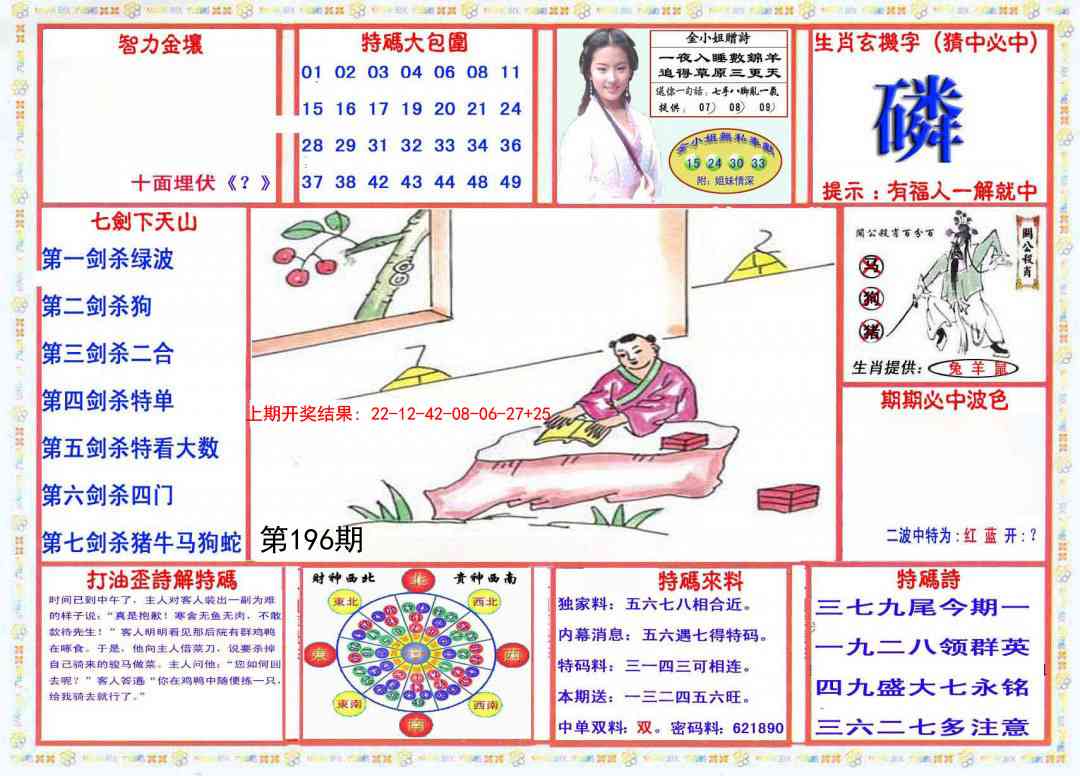 智力金壤
十面埋伏《？》
特碼大包圍
01 02 03 04 06 08 11
15 16 17 19 20 21 24
28 29 31 32 33 34 36
37 38 42 43 44 48 49
金小姐贈詩
一夜入睡數錦羊
追得草原三更天
送你一句話：七手八脚亂一氣
提供：07） 08） 09）
金小姐無私奉獻
15 24 30 33
附：姐妹情深
生肖玄機字（猜中必中）
磷
提示：有福人一解就中
七劍下天山
第一剑杀绿波
第二剑杀狗
第三剑杀二合
第四剑杀特单
第五剑杀特看大数
第六剑杀四门
第七剑杀猪牛马狗蛇
上期开奖结果：22-12-42-08-06-27+25
第196期
關公殺肖百分百
關公殺肖
马
狗
猪
生肖提供：兔 羊 鼠
期期必中波色
二波中特为：红 蓝 开：？
打油歪詩解特碼
时间已到中午了，主人对客人装出一副为难
的样子说：“真是抱歉！寒舍无鱼无肉，不敢
款待先生！”客人明明看见那后院有群鸡鸭
在啄食。于是，他向主人借菜刀，说要杀掉
自己骑来的骏马做菜。主人问他：“您如何回
去呢？”客人答道“你在鸡鸭中随便拣一只，
给我骑去就行了。”
財神西北 貴神西南
北
東北 西北
東 西
東南 西南
南
特碼來料
独家料：五六七八相合近。
内幕消息：五六遇七得特码。
特码料：三一四三可相连。
本期送：一三二四五六旺。
中单双料：双。密码料：621890
特碼詩
三七九尾今期一
一九二八领群英
四九盛大七永铭
三六二七多注意